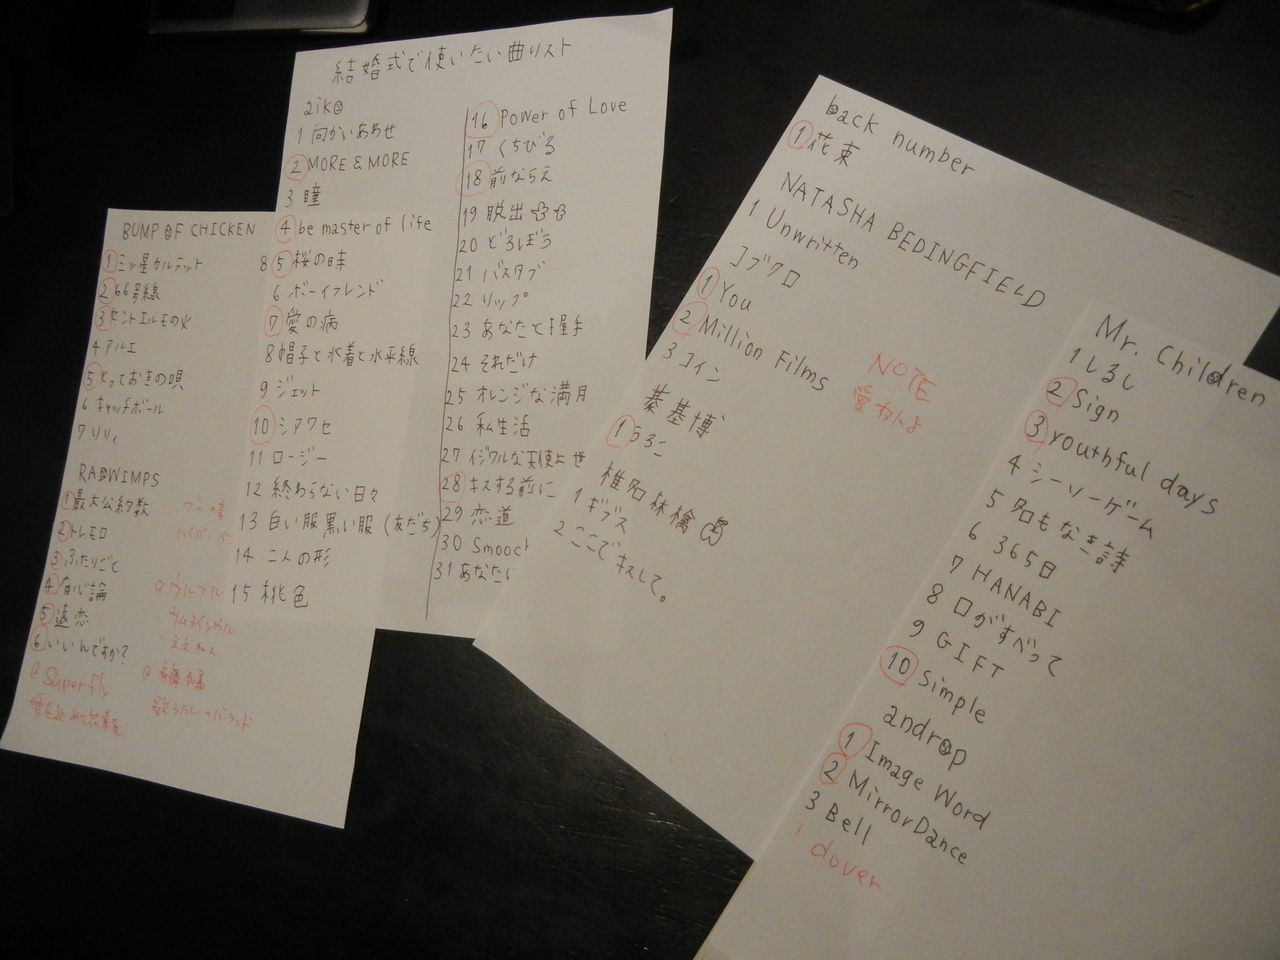 結婚式で使いたい曲リスト
aiko
1 向かいあわせ
2 MORE & MORE
3 瞳
4 be master of life
5 桜の時
6 ボーイフレンド
7 愛の病
8 帽子と水着と水平線
9 ジェット
10 シアワセ
11 ロージー
12 終わらない日々
13 白い服黒い服(友だち)
14 二人の形
15 桃色
16 Power of Love
17 くちびる
18 前ならえ
19 脱出
20 どろぼう
21 バスタブ
22 リップ
23 あなたと握手
24 それだけ
25 オレンジな満月
26 私生活
27 イジワルな天使よ世
28 キスする前に
29 恋道
30 Smooch
31 あなたに
BUMP OF CHICKEN
1 三ッ星カルテット
2 66号線
3 セントエルモの火
4 アルエ
5 とっておきの唄
6 キャッチボール
7 リリィ
8
RADWIMPS
1 最大公約数
2 トレモロ
3 ふたりごと
4 有心論
5 遠恋
6 いいんですか?
@ Superfly
愛を込めて花束を
@ ウルフル
サムライソウル
ええねん
@ 斉藤和義
歌うたいのバラッド
back number
1 花束
NATASHA BEDINGFIELD
1 Unwritten
コブクロ
1 You
2 Million Films
3 コイン
NOTE
愛なんよ
秦基博
1 うろこ
椎名林檎
1 ギブス
2 ここでキスして。
Mr. Children
1 しるし
2 Sign
3 youthful days
4 シーソーゲーム
5 名もなき詩
6 365日
7 HANABI
8 口がすべって
9 GIFT
10 Simple
androp
1 Image Word
2 MirrorDance
3 Bell
dover